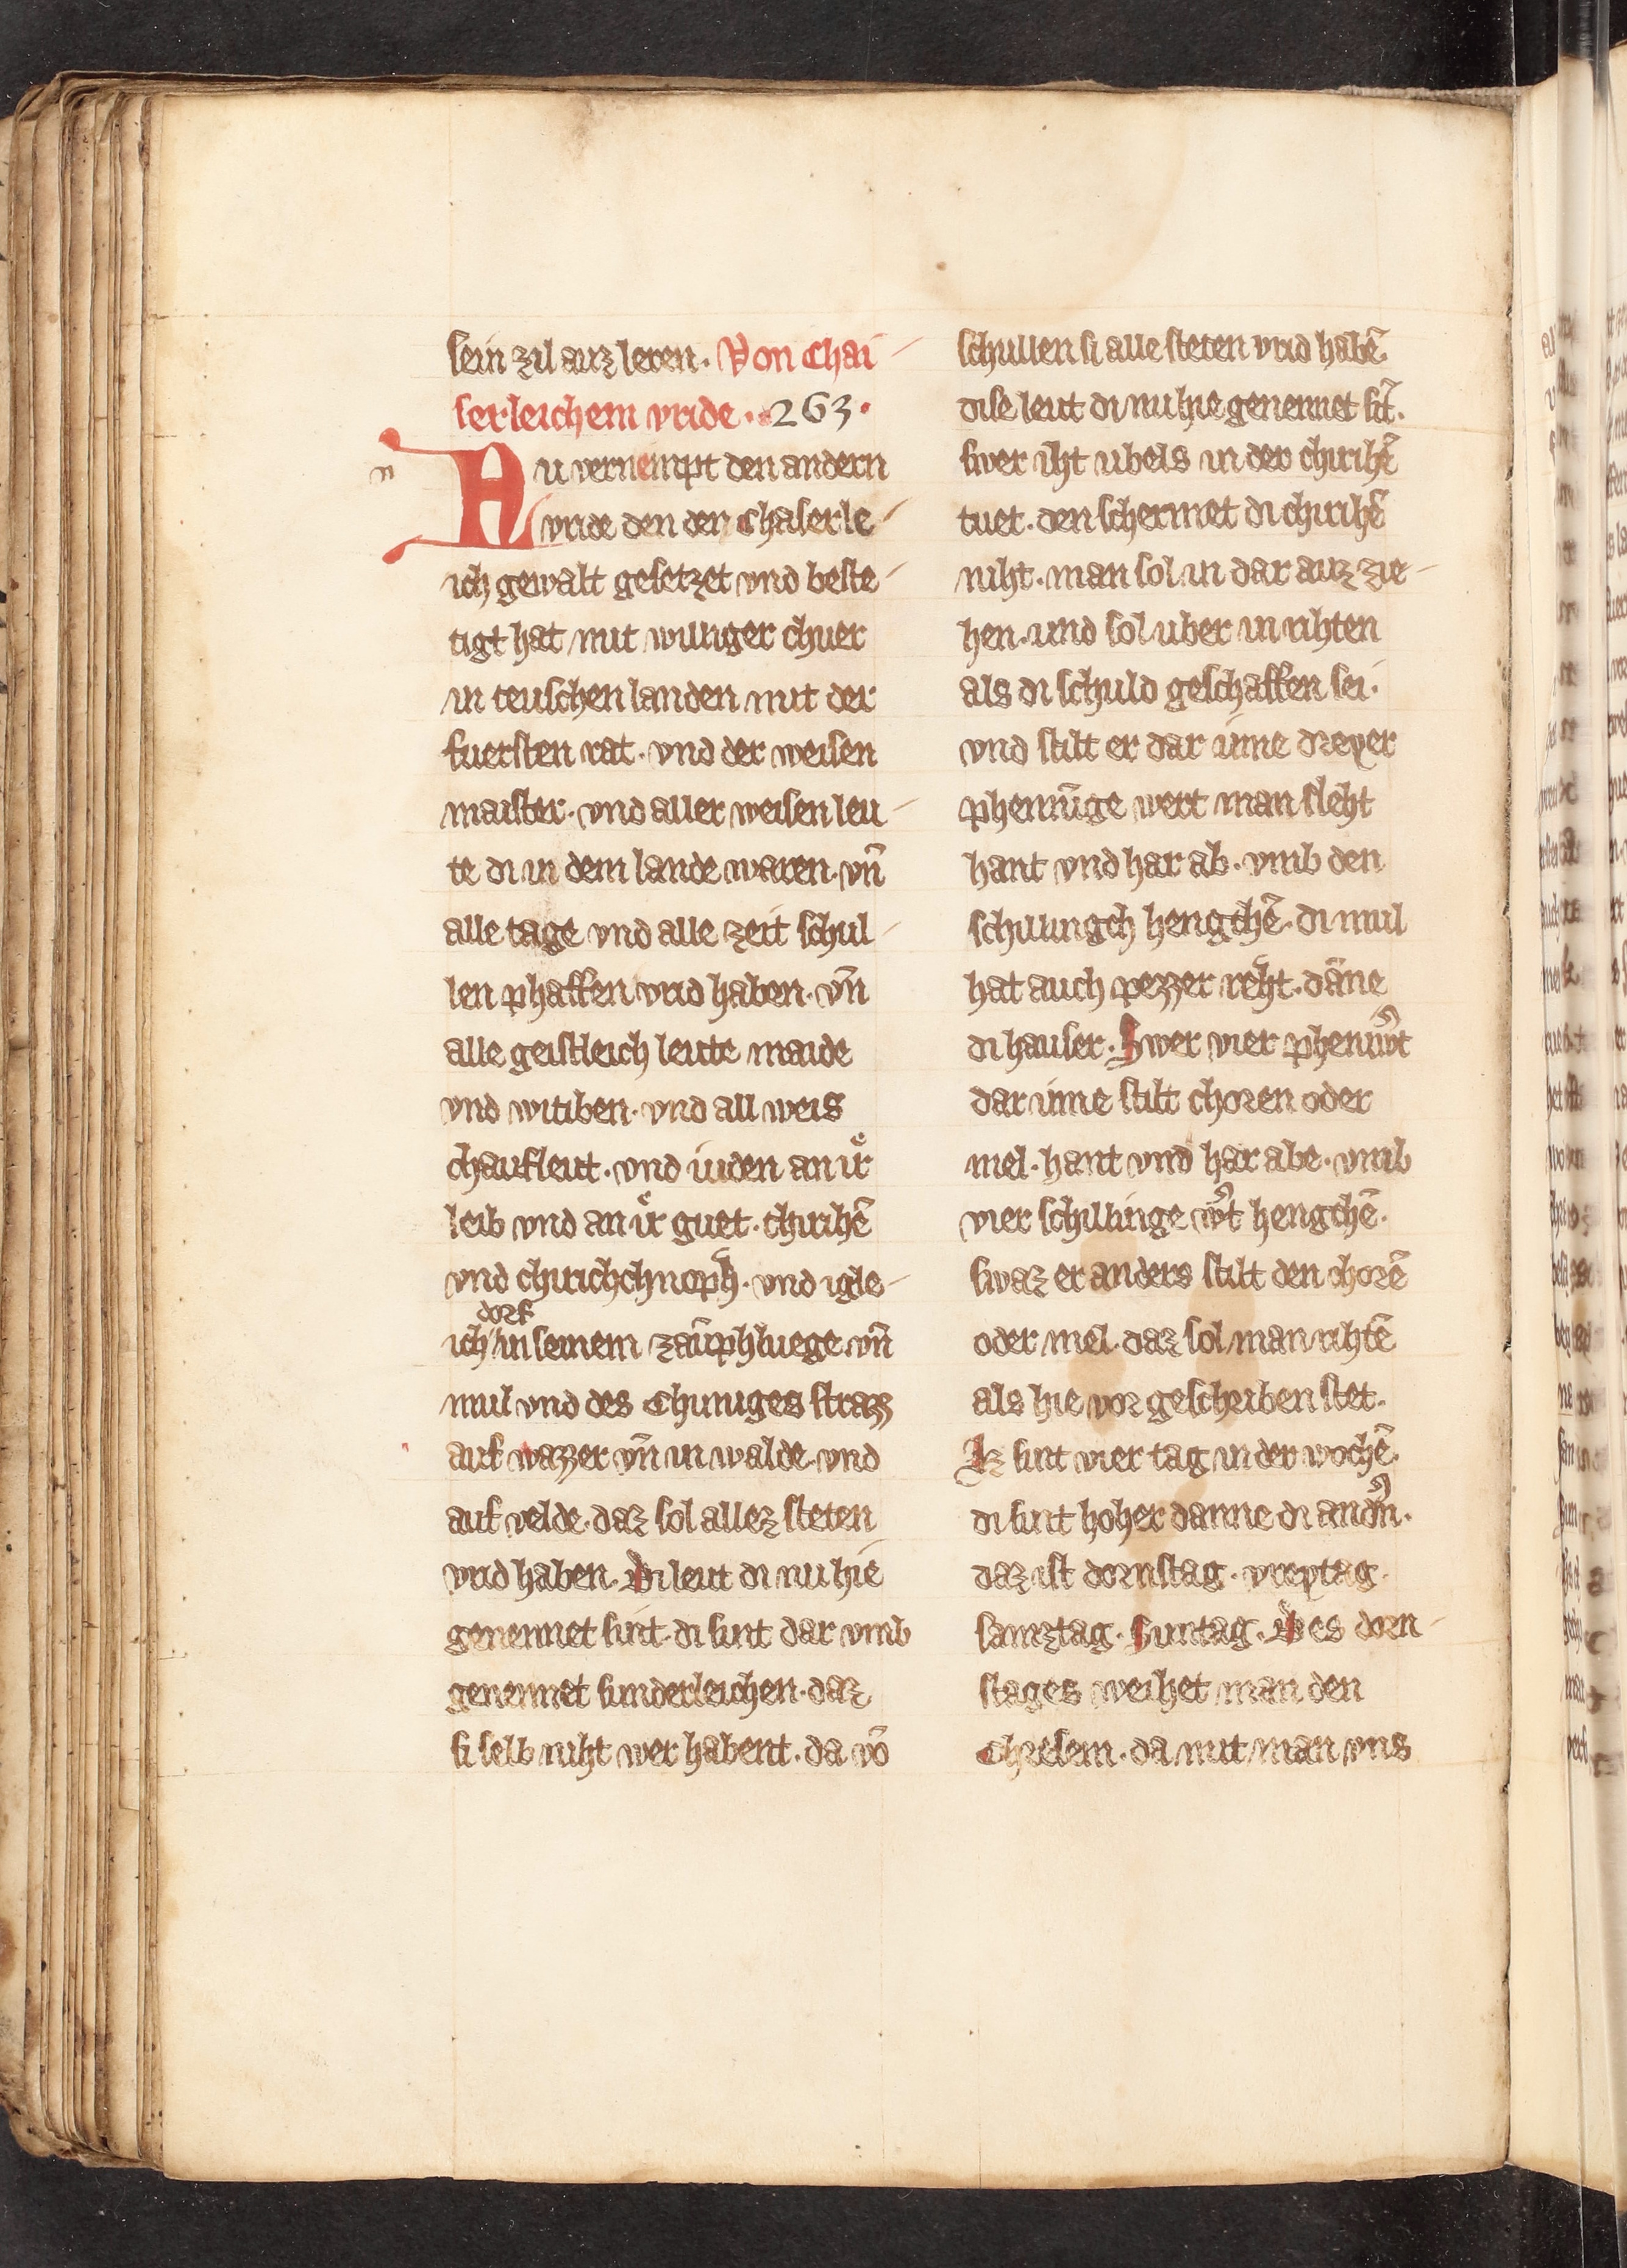 sein zil auz leren. Von Chai-
serleichem vride. 263.
n
Nu vernempt den andern
vride den der Chaserle-
ich gewalt gesetzet vnd beste-
tigt hat mit williger chuer
in teuschen landen mit der
fuersten rat. vnd der weisen
maister. vnd aller weisen leu-
te di in dem lande waren. vn̄
alle tage vnd alle zeit schul-
len phaffen vrid haben. vn̄
alle geistleich leute maide
vnd witiben. vnd all weis
chaufleut. vnd iuden an irͤ
leib vnd an irͤ guet. chirihē
vnd chirichchnoph. vnd igle-
dorf
ich in seinem zaū phluege vn̄
mul vnd des Chuniges strazz
auf wazzer vn̄ in walde. vnd
auf velde. daz sol allez steten
vrid haben. Di leut di nu hie
genennet sint. di sint dar vmb
genennet sunderleichen. daz
si selb niht wer habent. da vō
schullen si alle steten vrid habē.
dise leut di nu hie genennet sīt.
swer iht ubels in der chirihē
tuet. den schermet di chirihē
niht. man sol in dar auz zie-
hen. und sol uber in rihten
als di schuld geschaffen sei.
vnd stilt er dar inne dreyer
phenninge wert man sleht
hant vnd har ab. vmb den
schillingch hengchē. di mul
hat auch pezzer reht. dāne
di hauser. Swer vier phenīw͛t
dar inne stilt choren oder
mel. hant vnd har abe. vmb
vier schillinge w͛t hengchē.
swaz er anders stilt den chorē
oder mel. daz sol man rihtē
als hie vor geschriben stet.
Ez sint vier tag in der wochē.
di sint hoher danne di and͛n.
daz ist dornstag. vreytag.
samztag. Suntag. Des dorn-
stages weihet man den
Chresem. da mit man vns